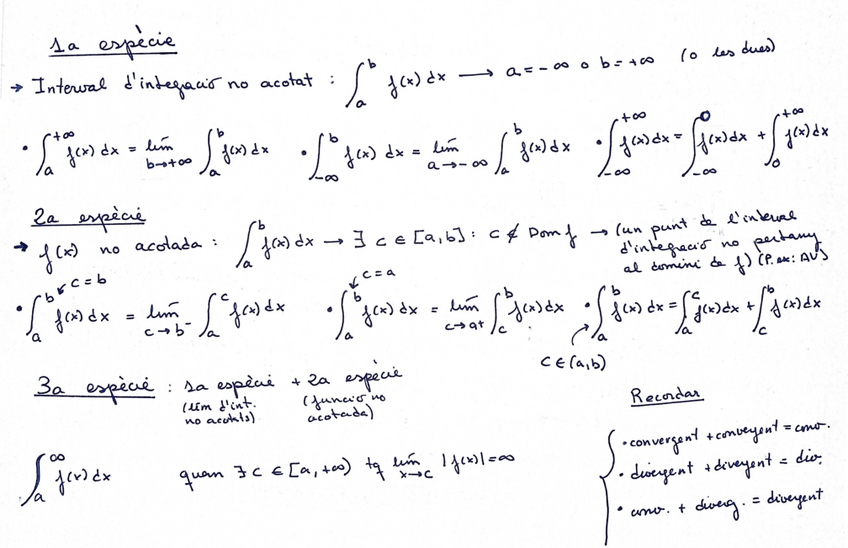 1a espècie
→ Interval d'integració no acotat : ∫_a^b f(x) dx ⟶ a = -∞ o b = +∞ (o les dues)
• ∫_a^{+∞} f(x) dx = lím_{b→+∞} ∫_a^b f(x) dx • ∫_{-∞}^b f(x) dx = lím_{a→-∞} ∫_a^b f(x) dx • ∫_{-∞}^{+∞} f(x) dx = ∫_{-∞}^0 f(x) dx + ∫_0^{+∞} f(x) dx
2a espècie
→ f(x) no acotada : ∫_a^b f(x) dx → ∃ c ∈ [a,b] : c ∉ Dom f → (un punt de l'interval
d'integració no pertany
al domini de f) (P. ex: AV)
c = b
c = a
• ∫_a^b f(x) dx = lím_{c→b^-} ∫_a^c f(x) dx • ∫_a^b f(x) dx = lím_{c→a+} ∫_c^b f(x) dx • ∫_a^b f(x) dx = ∫_a^c f(x) dx + ∫_c^b f(x) dx
c ∈ (a,b)
3a espècie : 1a espècie + 2a espècie
(lím d'int. no acotats) (funció no acotada)
∫_a^∞ f(x) dx quan ∃ c ∈ [a, +∞) tq lím_{x→c} |f(x)| = ∞
Recordar
• convergent + convergent = conv.
• divergent + divergent = div.
• conv. + diverg. = divergent